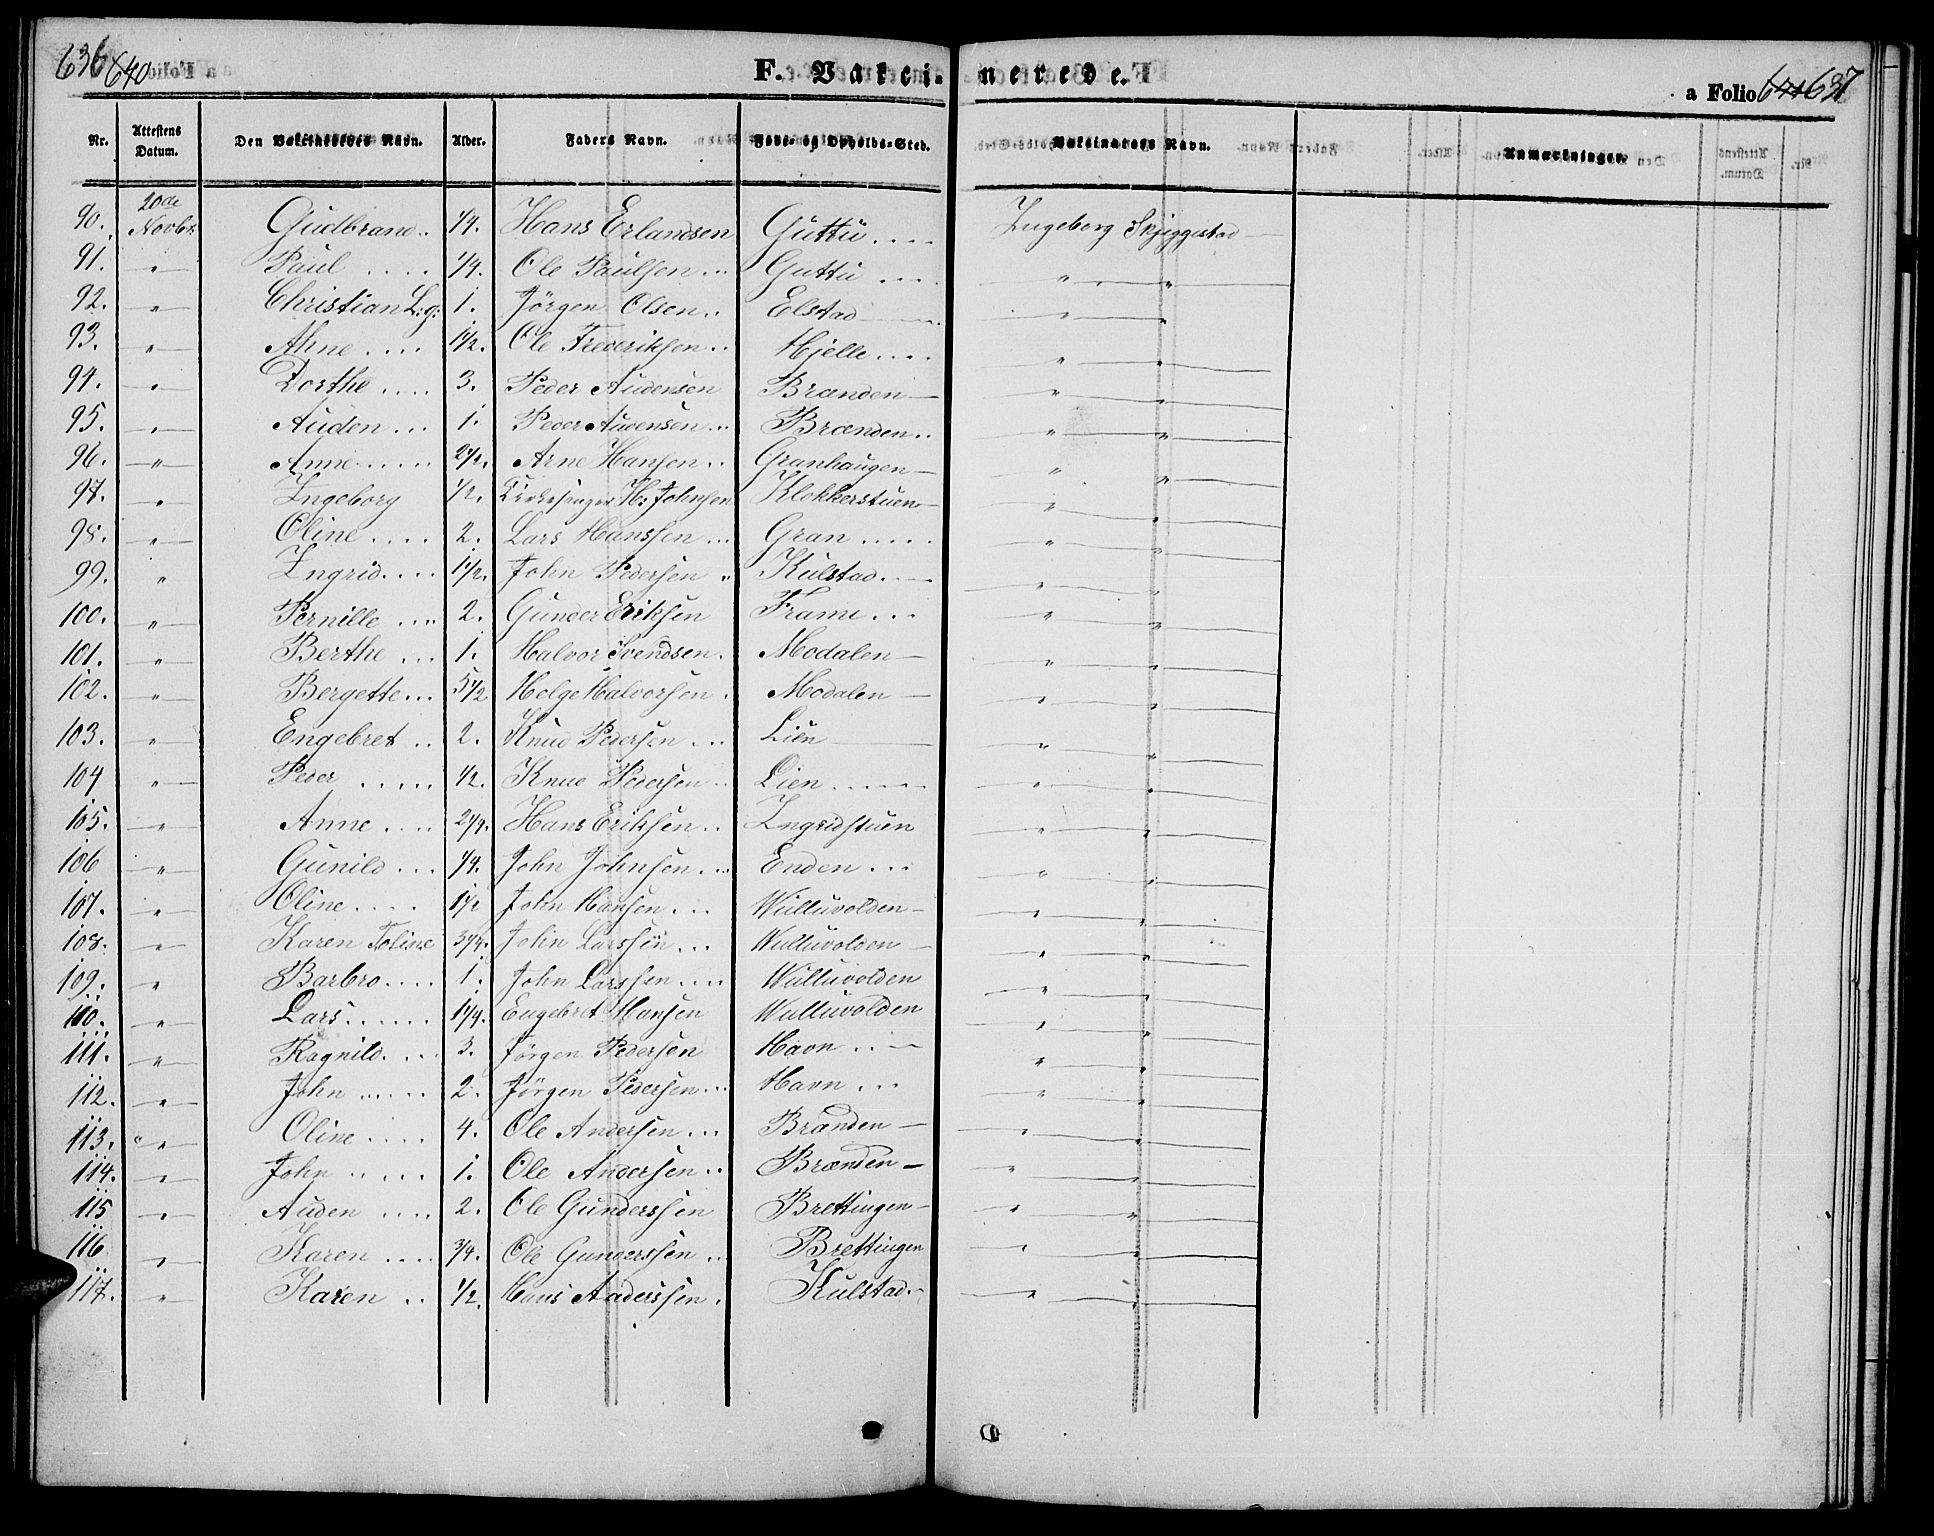 636 640
F. Vakcinerede.
a Folio 641 637
Nr. Attestens Datum. Den Vakcineredes Navn. Alder. Faders Navn. Føde- og Opholds-Sted. Vakcinators Navn. Anmærkninger.
90. 20de Novbr. Gudbrand.. 1/4. Hans Erlandsen Guttu.... Ingeborg Skjeggestad —
91. " Paul .... 1/4. Ole Paulsen... Guttu ... " "
92. " Christian L:g: 1. Jörgen Olsen.. Elstad — " "
93. " Ahne .... 1 1/2. Ole Frederiksen.. Hjelle.... " "
94. " Dorthe .... 3. Peder Audensen Brænden — " "
95. " Auden ... 1. Peder Audensen... Brænden.. " "
96. " Anne ..... 2 1/2. Arne Hansen.. Granhaugen — " "
97. " Ingeborg 1/2. Kirkesanger H: Johnsen Klokkerstuen — " "
98. " Oline .... 2. Lars Hanssen... Gran ..... " "
99. " Ingrid.... 1 1/2. John Pedersen " Kulstad.. — " "
100. " Pernille .... 2. Gunder Eriksen Frame... " "
101. " Berthe ... 1. Halvor Svendsen. Modalen — " "
102. " Bergette... 5 1/2 Helge Halvorsen. Modalen — " "
103. " Engebret .. 2. Knud Pedersen... Lien — " "
104 " Peder ..... 1/2. Knud Pedersen.. Lien ...... " "
105. " Anne .... 2 1/4. Hans Eriksen.. Ingridstuen " "
106 " Gunild ... 1/4. John Johnsen... Enden... " "
107. " Oline.... 1 1/2 John Hansen... Wulluvolden — " "
108. " Karen Toline 3/4. John Larssen... Wulluvolden — " "
109. " Barbro.... 1. John Larssen.... Wulluvolden " "
110. " Lars...... 1 1/4. Engebret Hansen Wulluvolden " "
111. " Ragnild.... 3. Jörgen Pedersen Havn .... " "
112. " John ...... 2. Jörgen Pedersen... Havn ... " "
113. " Oline .... 4. Ole Andersen... Brænden — " "
114. " John ..... 1. Ole Andersen.. Brænden — " "
115 " Auden .... 2. Ole Gunderssen Brettingen — " "
116 " Karen .... 3/4. Ole Gunderssen .. Brettingen " "
117. " Karen .. 1/2. Hans Anderssen. Kulstad.. " "